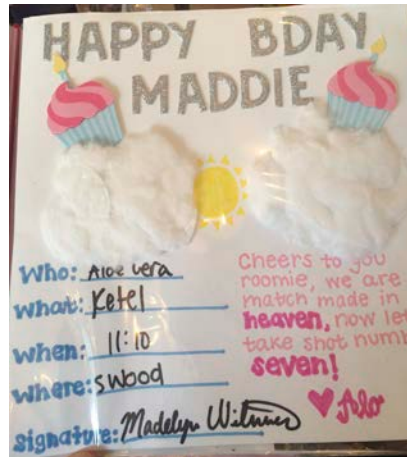 HAPPY BDAY
MADDIE
Who: Aloe vera
What: Ketel
When: 11:10
Where: Swood
Signature: Madelyn
Cheers to you
roomie, we are
match made in
heaven, now let
take shot num
seven!